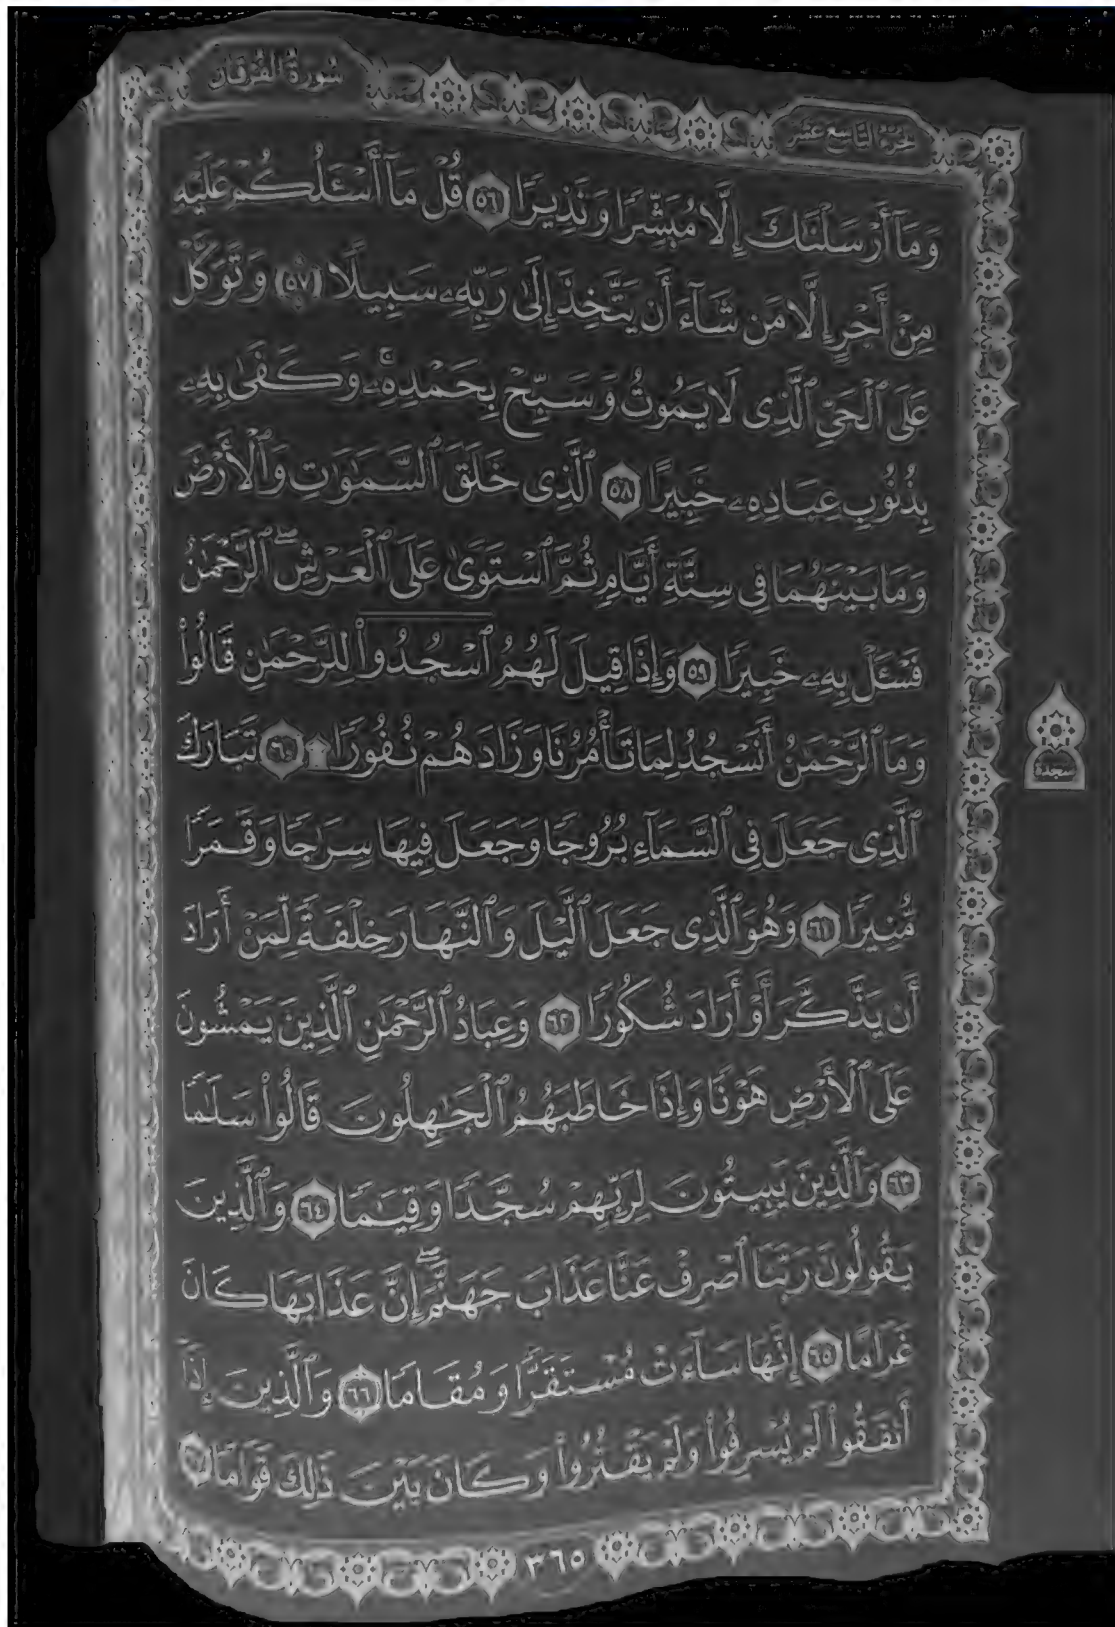 سُورَةُ الفُرْقَانِ
الجُزْءُ التَّاسِعَ عَشَرَ
وَمَآ أَرْسَلْنَٰكَ إِلَّا مُبَشِّرًا وَنَذِيرًا ٥٦ قُلْ مَآ أَسْـَٔلُكُمْ عَلَيْهِ
مِنْ أَجْرٍ إِلَّا مَن شَآءَ أَن يَتَّخِذَ إِلَىٰ رَبِّهِۦ سَبِيلًا ٥٧ وَتَوَكَّلْ
عَلَى ٱلْحَىِّ ٱلَّذِى لَا يَمُوتُ وَسَبِّحْ بِحَمْدِهِۦۚ وَكَفَىٰ بِهِۦ
بِذُنُوبِ عِبَادِهِۦ خَبِيرًا ٥٨ ٱلَّذِى خَلَقَ ٱلسَّمَٰوَٰتِ وَٱلْأَرْضَ
وَمَا بَيْنَهُمَا فِى سِتَّةِ أَيَّامٍ ثُمَّ ٱسْتَوَىٰ عَلَى ٱلْعَرْشِۖ ٱلرَّحْمَٰنُ
فَسْـَٔلْ بِهِۦ خَبِيرًا ٥٩ وَإِذَا قِيلَ لَهُمُ ٱسْجُدُوا۟ لِلرَّحْمَٰنِ قَالُوا۟
وَمَا ٱلرَّحْمَٰنُ أَنَسْجُدُ لِمَا تَأْمُرُنَا وَزَادَهُمْ نُفُورًا ۩ ٦٠ تَبَارَكَ
سجدة
ٱلَّذِى جَعَلَ فِى ٱلسَّمَآءِ بُرُوجًا وَجَعَلَ فِيهَا سِرَٰجًا وَقَمَرًا
مُّنِيرًا ٦١ وَهُوَ ٱلَّذِى جَعَلَ ٱلَّيْلَ وَٱلنَّهَارَ خِلْفَةً لِّمَنْ أَرَادَ
أَن يَذَّكَّرَ أَوْ أَرَادَ شُكُورًا ٦٢ وَعِبَادُ ٱلرَّحْمَٰنِ ٱلَّذِينَ يَمْشُونَ
عَلَى ٱلْأَرْضِ هَوْنًا وَإِذَا خَاطَبَهُمُ ٱلْجَٰهِلُونَ قَالُوا۟ سَلَٰمًا
٦٣ وَٱلَّذِينَ يَبِيتُونَ لِرَبِّهِمْ سُجَّدًا وَقِيَٰمًا ٦٤ وَٱلَّذِينَ
يَقُولُونَ رَبَّنَا ٱصْرِفْ عَنَّا عَذَابَ جَهَنَّمَۖ إِنَّ عَذَابَهَا كَانَ
غَرَامًا ٦٥ إِنَّهَا سَآءَتْ مُسْتَقَرًّا وَمُقَامًا ٦٦ وَٱلَّذِينَ إِذَآ
أَنفَقُوا۟ لَمْ يُسْرِفُوا۟ وَلَمْ يَقْتُرُوا۟ وَكَانَ بَيْنَ ذَٰلِكَ قَوَامًا ٦٧
٣٦٥